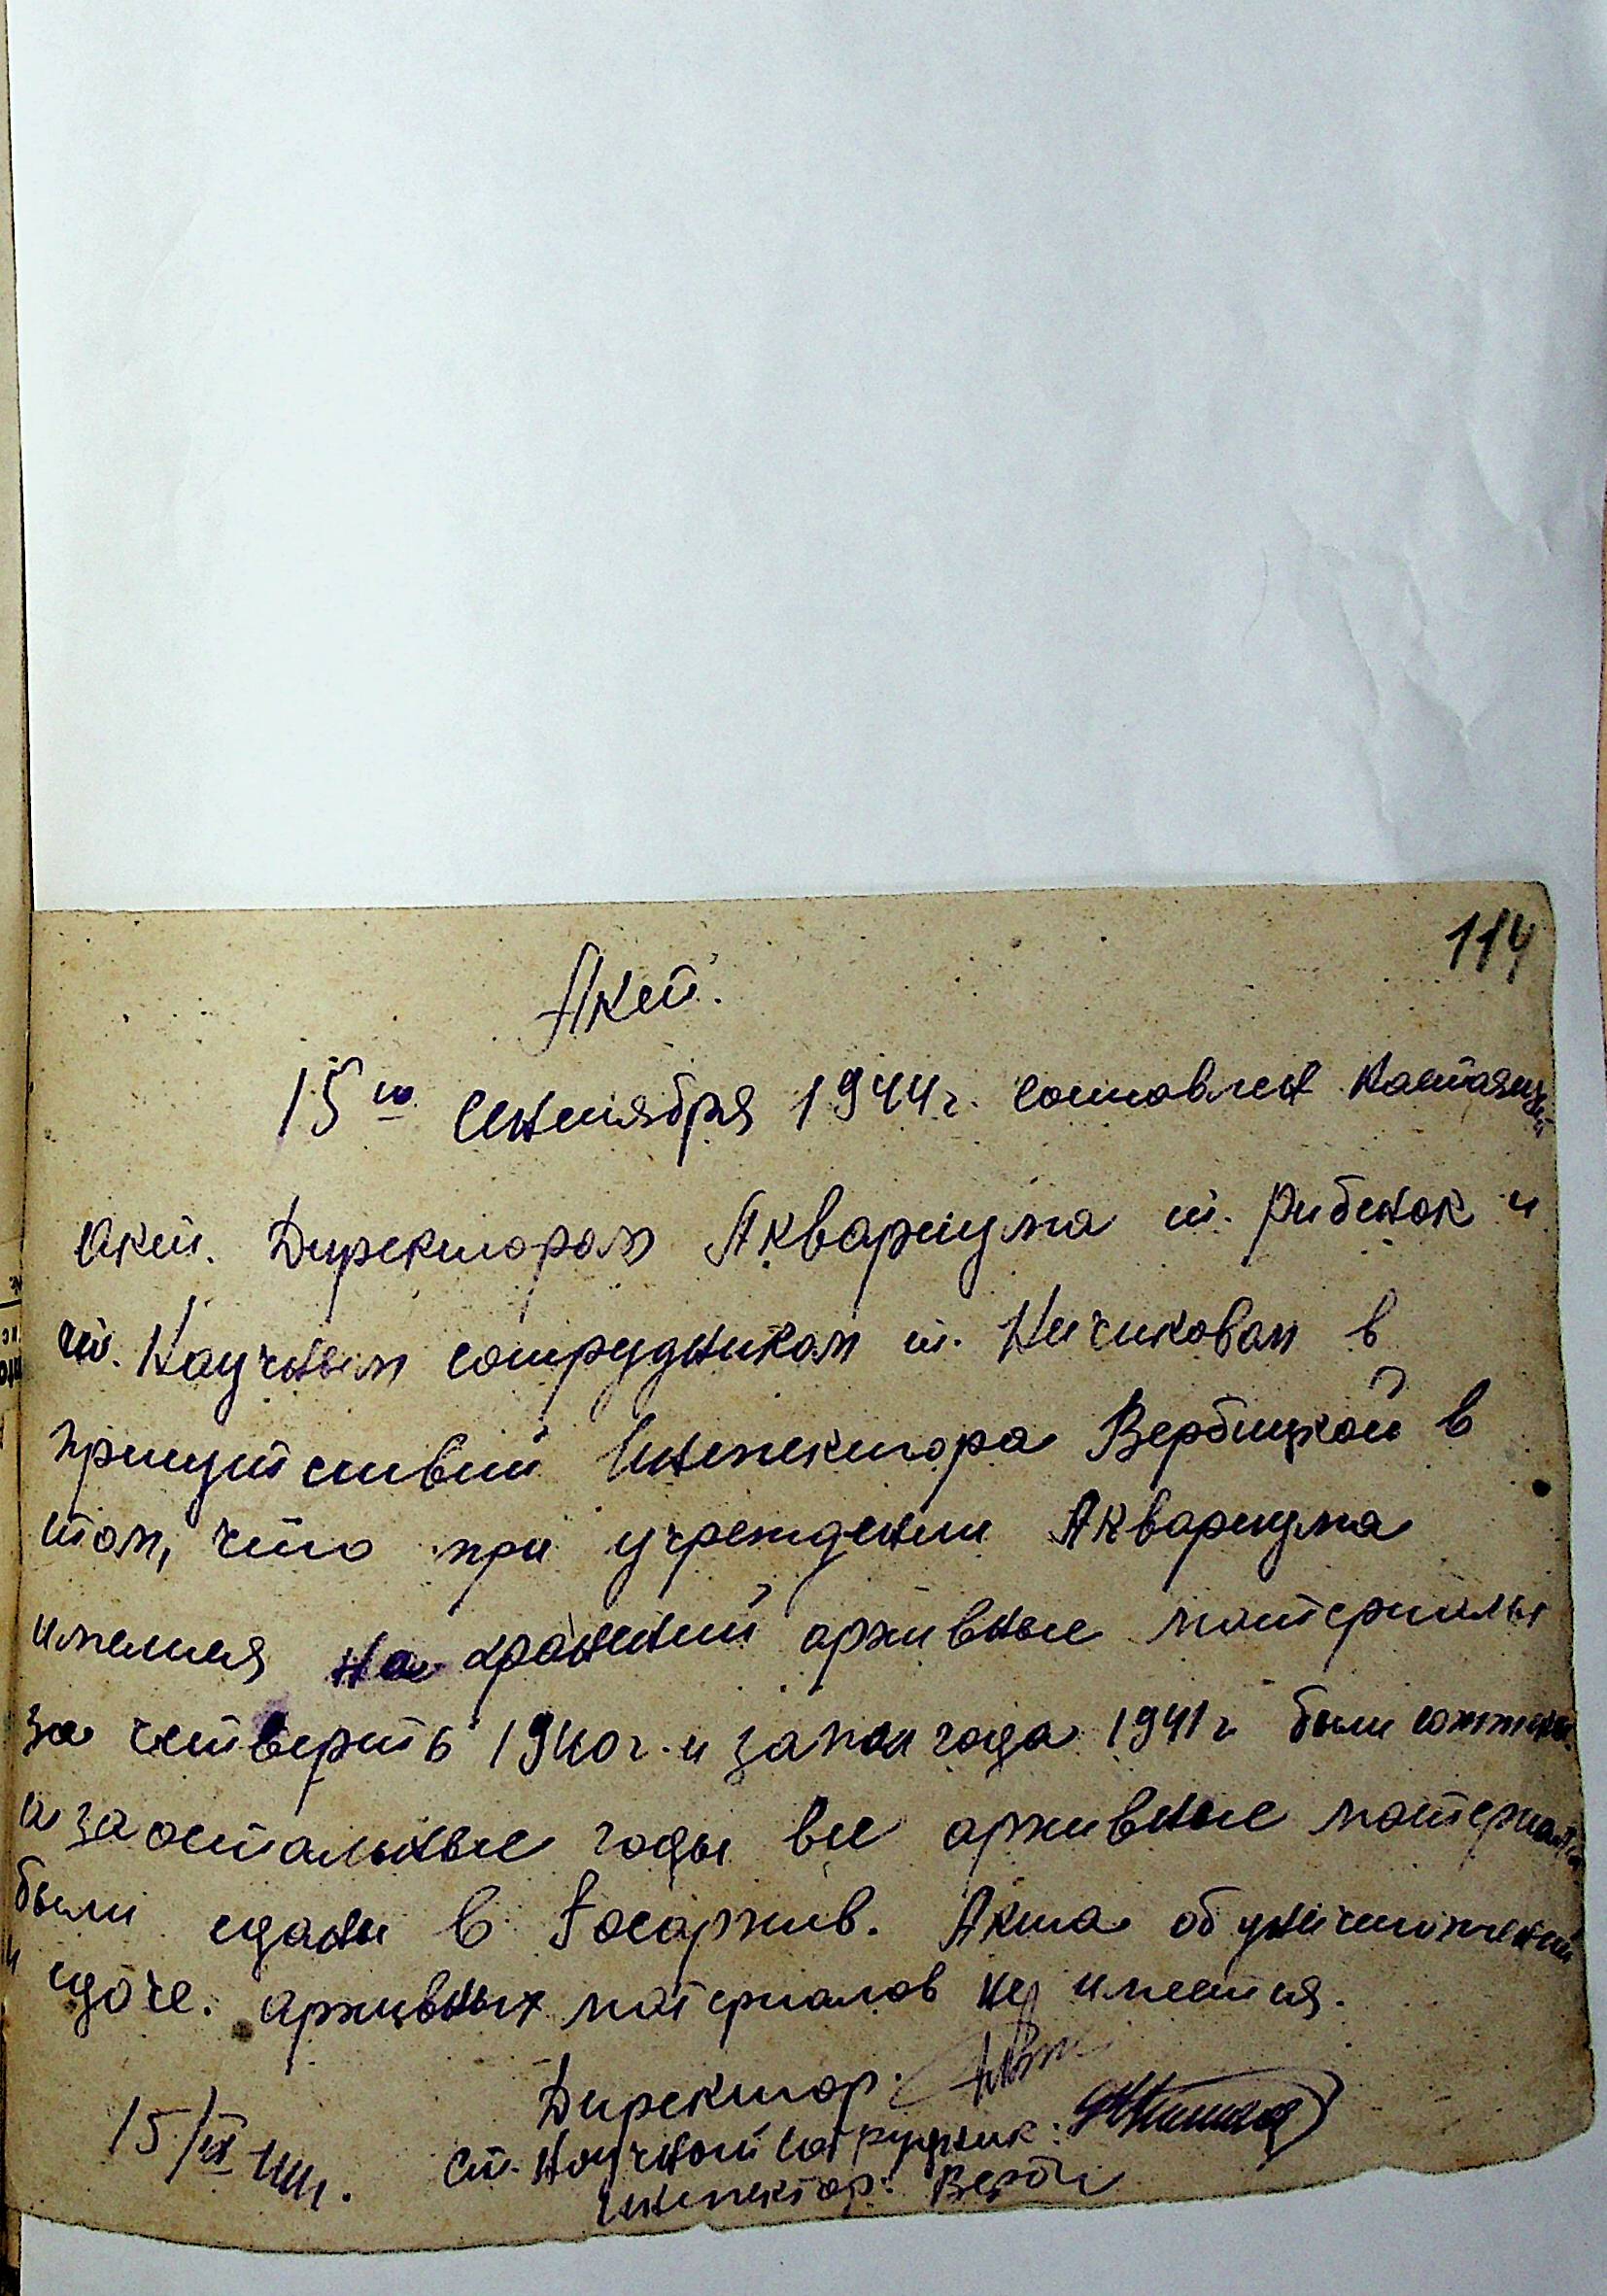 114
Акт.
15го Сентября 1944г. составлен настоящий
акт. Директором Аквариума т. Рибенок и
ст. Научным сотрудником т. Ничиковам в
присутствии Инспектора Вербицкой в
том, что при учреждении Аквариума
имелися на хранений архивные материалы
за четверть 1940г. и за пол года 1941г были сожжены
а за остальные годы все архивные материалы
были сданы в Госархив. Акта об уничтожений
и сдаче. архивных материалов не имеется.
Директор.
15/IX 44г.
ст. Научной сотрудник:
Инспектор: Верби